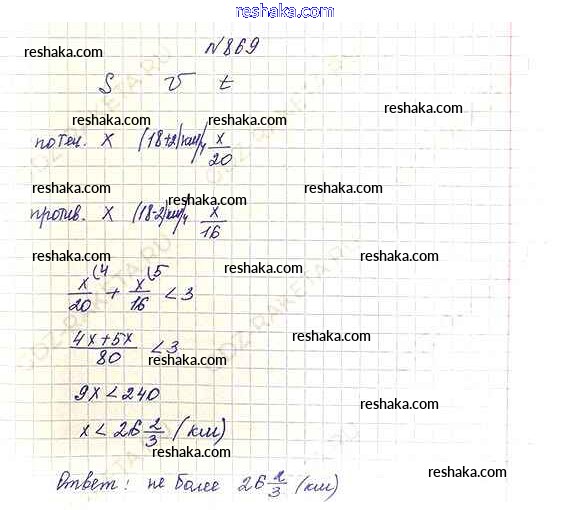 reshaka.com
№869
reshaka.com reshaka.com reshaka.com
S V t
reshaka.com reshaka.com
по теч. x (18+2) км/ч x/20
reshaka.com reshaka.com reshaka.com
против. x (18-2) км/ч x/16
reshaka.com reshaka.com reshaka.com
x/20 (4 + x/16 (5 < 3
reshaka.com
4x+5x/80 < 3
reshaka.com reshaka.com
9x < 240
reshaka.com
x < 26 2/3 (км)
reshaka.com
Ответ: не более 26 2/3 (км)
reshaka.com